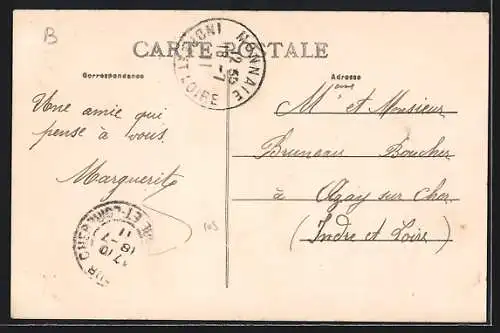 B
CARTE POSTALE
MONNAIE
INDRE ET LOIRE
12 55
18 -7
11
Correspondance
Adresse
Une amie qui
pense à vous.
Marguerite
Mme et Monsieur
Bruneau Boucher
à Azay sur Cher
(Indre et Loire)
17 10
18 -7
11
105